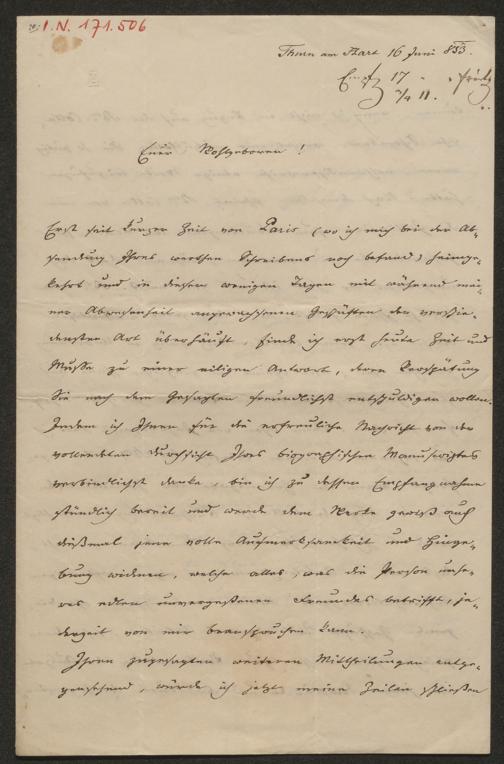 I.N. 171.506
Thurn am Hart 16 Juni 853.
17
11.
Euer Wohlgeboren!
Erst seit kurzer Zeit von Paris (wo ich mich bei der Ab-
sendung Ihres werthen Schreibens noch befand) heimge-
kehrt und in diesen wenigen Tagen mit während mei-
ner Abwesenheit angewachsenen Geschäften der verschie-
densten Art überhäuft, finde ich erst heute Zeit und
Muße zu einer eiligen Antwort, deren Verspätung
Sie nach dem Gesagten freundlichst entschuldigen wollen.
Indem ich Ihnen für die erfreuliche Nachricht von der
vollendeten Durchsicht Ihres biographischen Manuscriptes
verbindlichst danke, bin ich zu dessen Empfangnahme
stündlich bereit und werde dem Werke gewiß auch
dießmal jene volle Aufmerksamkeit und Hinge-
bung widmen, welche alles, was die Person unse-
res edlen unvergeßenen Freundes betrifft, je-
derzeit von mir beanspruchen kann.
Ihren zugesagten weiteren Mittheilungen entge-
gensehend, würde ich jetzt meine Zeilen schließen